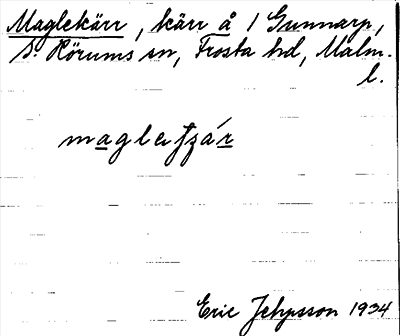 Maglekärr, kärr å 1 Gunnarp,
S. Rörums sn, Frosta hd, Malm.
l.
maglatʃár
Eric 1934